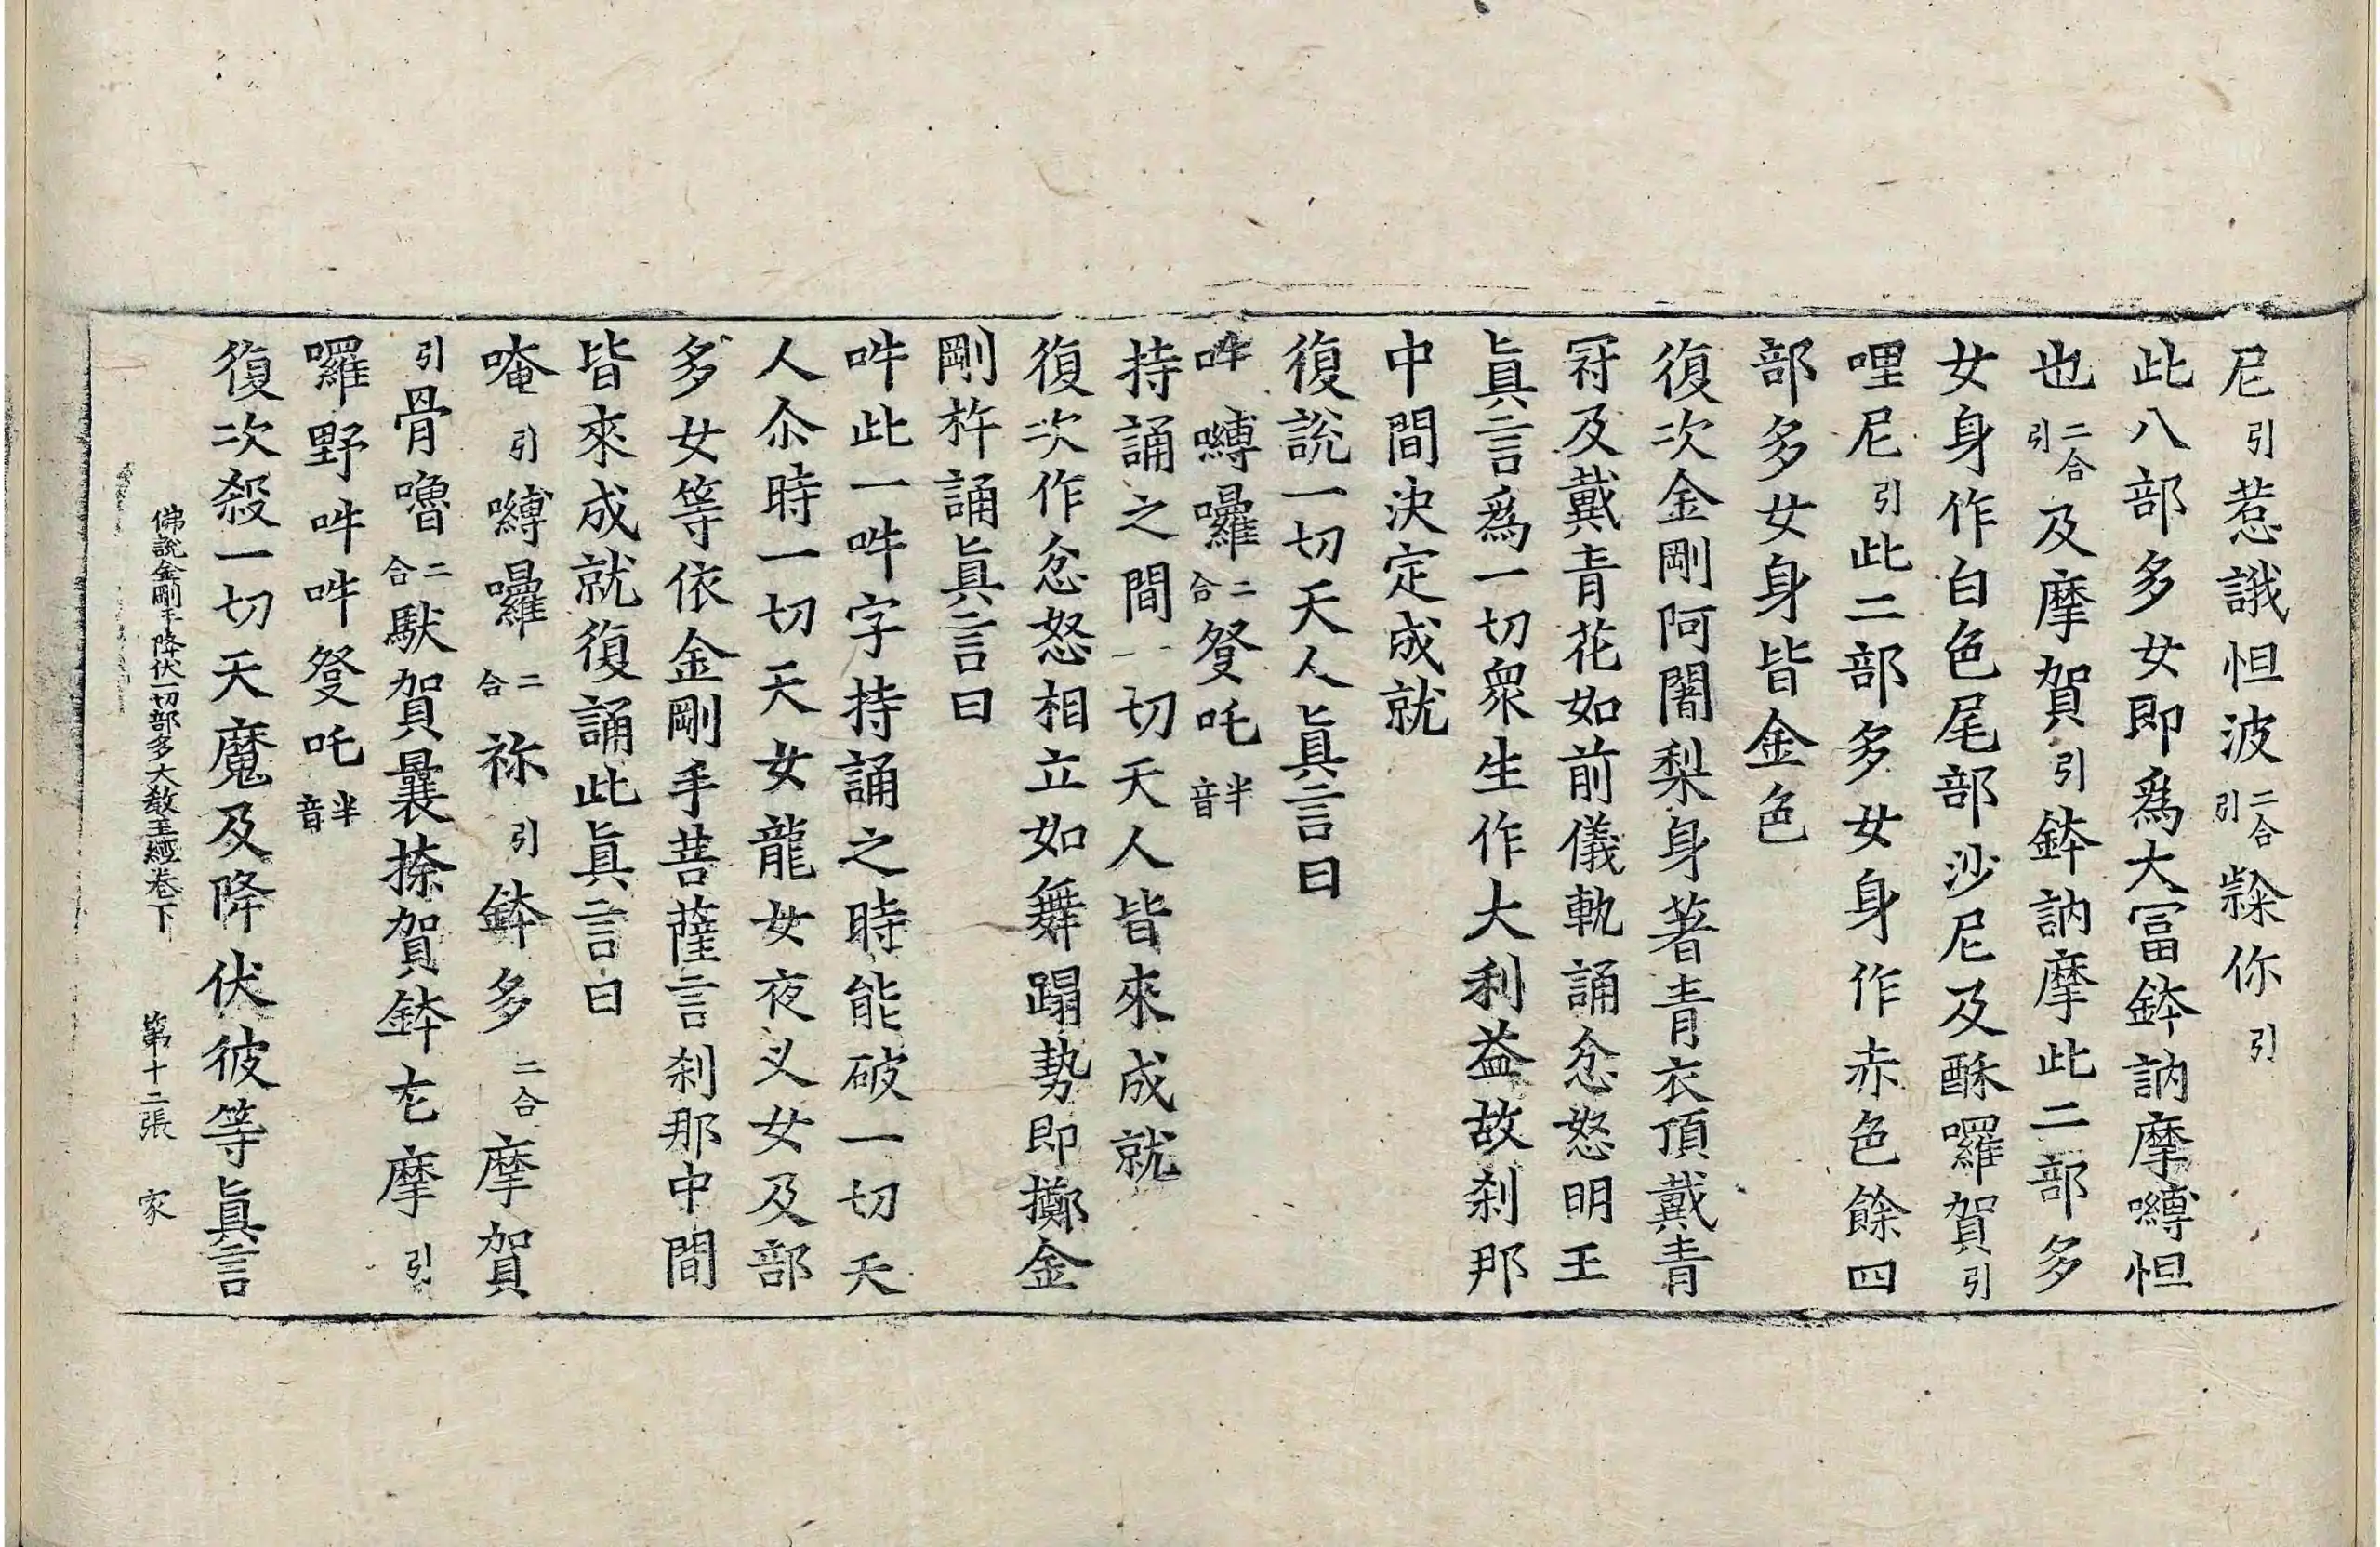 尼引惹誐怛波二合引㰠你引
此八部多女即爲大冨鉢訥摩嚩怛
也二合引及摩賀引鉢訥摩此二部多
女身作白色尾部沙尼及酥囉賀引
哩尼引此二部多女身作赤色餘四
部多女身皆金色
復次金剛阿闍梨身著青衣頂戴青
冠及戴青花如前儀軌誦忿怒明王
眞言爲一切衆生作大利益故刹那
中間決定成就
復說一切天人眞言曰
吽嚩囉二合發吒半音
持誦之間一切天人皆來成就
復次作忿怒相立如舞蹋勢即擲金
剛杵誦眞言曰
吽此一吽字持誦之時能破一切天
人尒時一切天女龍女夜叉女及部
多女等依金剛手菩薩言刹那中間
皆來成就復誦此眞言曰
唵引嚩囉二合祢引鉢多二合摩賀
引骨嚕二合馱賀曩捺賀鉢左摩引
囉野吽吽發吒半音
復次殺一切天魔及降伏彼等眞言
佛說金剛手降伏一切部多大教王經卷下 第十二張 家